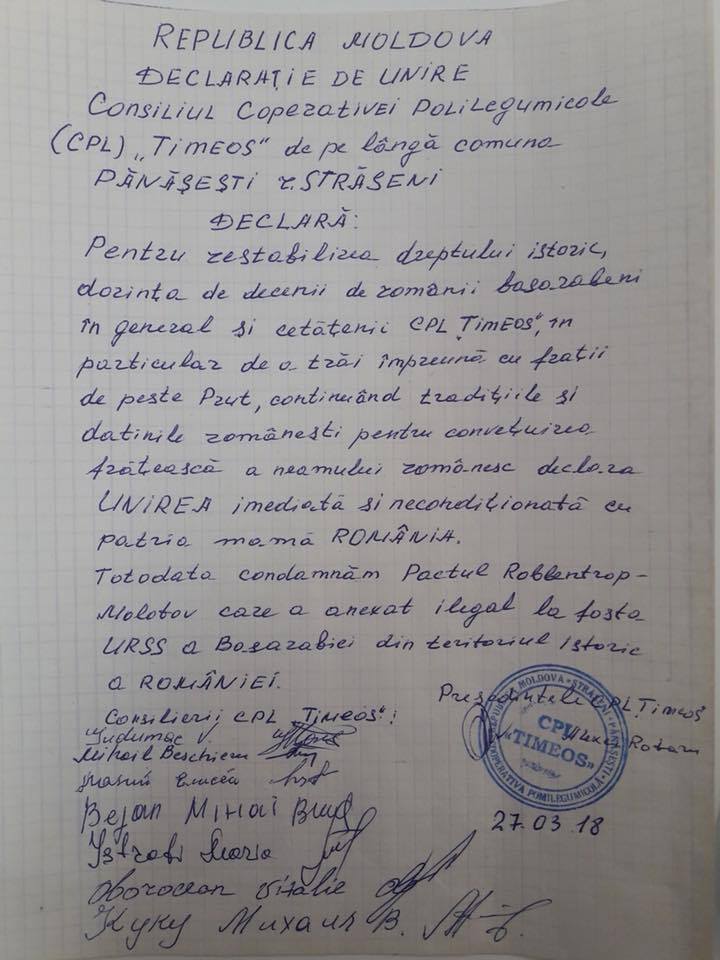 REPUBLICA MOLDOVA
DECLARAȚIE DE UNIRE
Consiliul Coperativei PoliLegumicole
(CPL) „TIMEOS“ de pe lângă comuna
PĂNĂȘEȘTI r. STRĂȘENI
DECLARĂ:
Pentru restabilirea dreptului istoric,
dorința de decenii de românii basarabeni
în general și cetățenii CPL „TIMEOS“, în
particular de a trăi împreună cu frații
de peste Prut, continuând tradițiile și
datinile românești pentru convețuirea
frățească a neamului românesc declara
UNIREA imediată și necondiționată cu
patria mamă ROMÂNIA.
Totodata condamnăm Pactul Roblentrop-
Molotov care a anexat ilegal la fosta
URSS a Basarabiei din teritoriul Istoric
a ROMÂNIEI.
Președintele CPL „Timeos
Consilierii CPL „TIMEOS“:
Mihail Beschieru
Bejan Mihai
Istrati Maria
Oborocean Vitalie
Куку Михаил В.
Rotaru
MOLDOVA • STRĂȘENI • PĂNĂȘEȘTI
COOPERATIVA POMILEGUMICOLĂ
CPL
«TIMEOS»
27.03.18